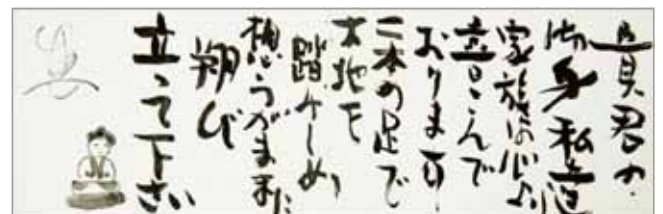 貴君の
御身私達
家族は心より
喜こんで
おります
二本の足で
大地を
踏みしめ、
想うがままに
翔び
立って下さい